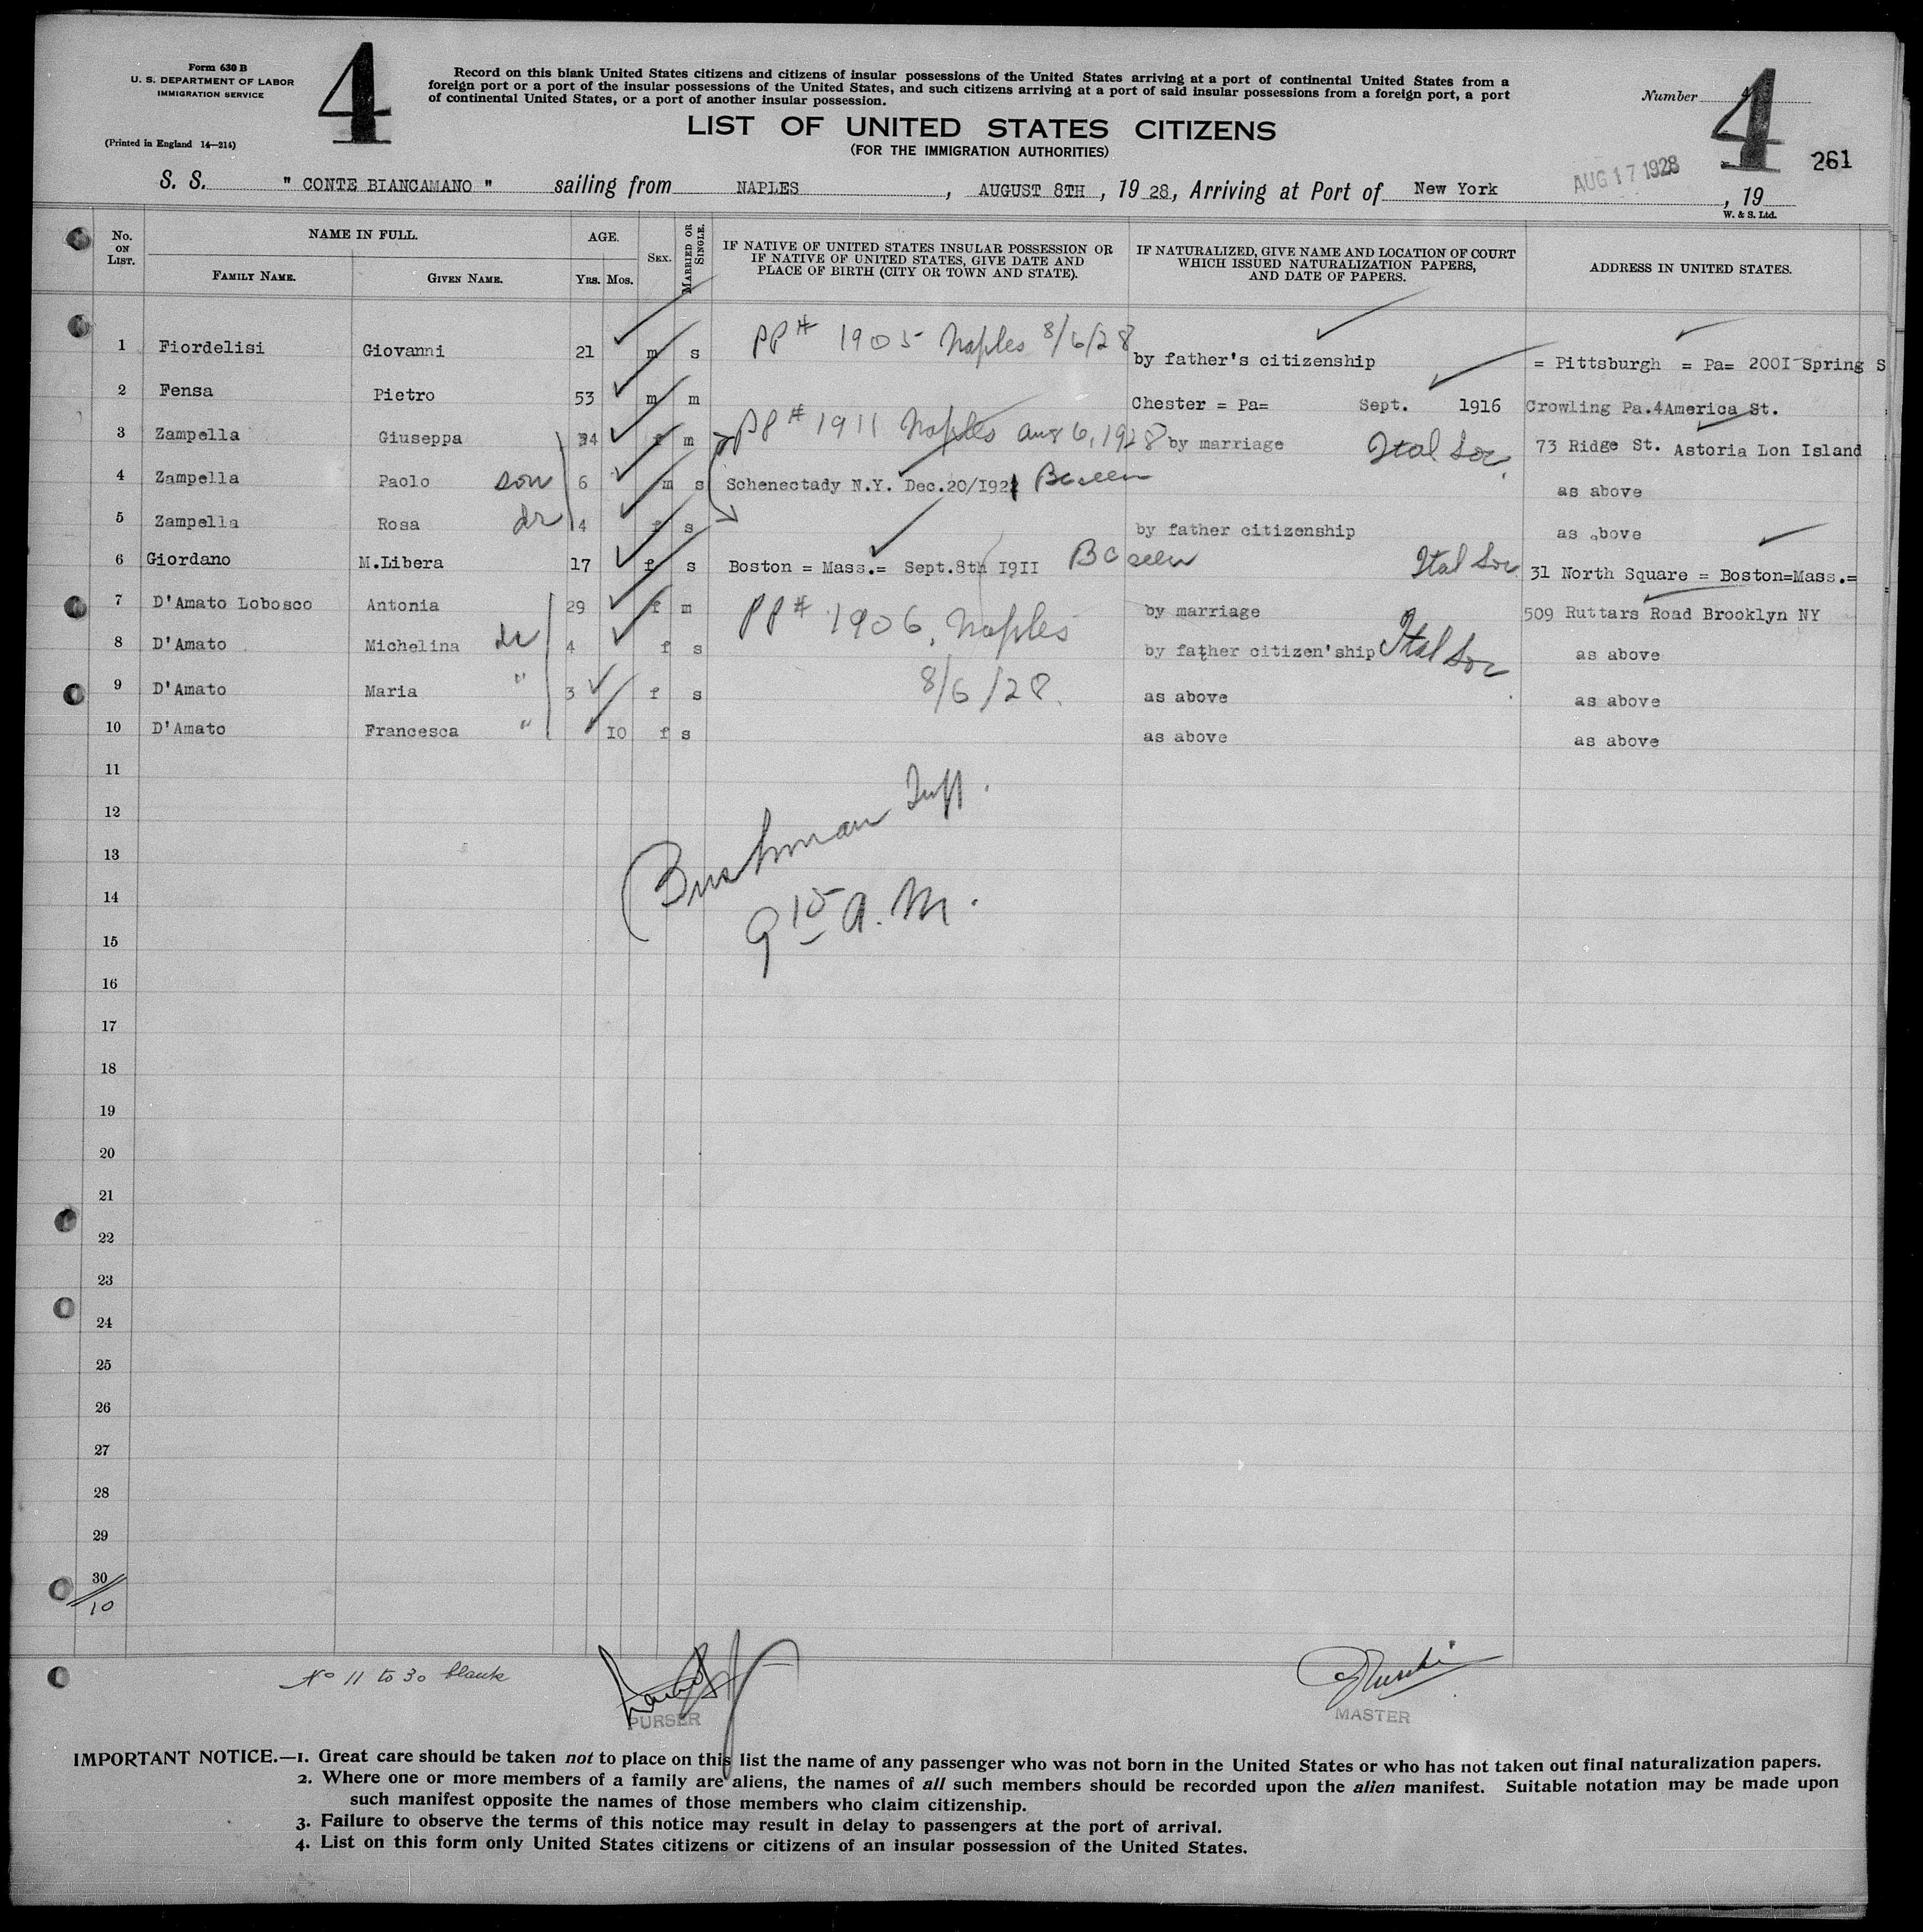 Form 630 B
U. S. DEPARTMENT OF LABOR
IMMIGRATION SERVICE
(Printed in England 14—214)
4
Record on this blank United States citizens and citizens of insular possessions of the United States arriving at a port of continental United States from a
foreign port or a port of the insular possessions of the United States, and such citizens arriving at a port of said insular possessions from a foreign port, a port
of continental United States, or a port of another insular possession.
Number 4
4
261
LIST OF UNITED STATES CITIZENS
(FOR THE IMMIGRATION AUTHORITIES)
AUG 17 1928
S. S. " CONTE BIANCAMANO " sailing from NAPLES , AUGUST 8TH , 19 28, Arriving at Port of New York , 19
W. & S. Ltd.
No. ON LIST. NAME IN FULL. AGE. SEX. MARRIED OR SINGLE. IF NATIVE OF UNITED STATES INSULAR POSSESSION OR IF NATIVE OF UNITED STATES, GIVE DATE AND PLACE OF BIRTH (CITY OR TOWN AND STATE). IF NATURALIZED, GIVE NAME AND LOCATION OF COURT WHICH ISSUED NATURALIZATION PAPERS, AND DATE OF PAPERS. ADDRESS IN UNITED STATES.
FAMILY NAME. GIVEN NAME. YRS. MOS.
1 Fiordelisi Giovanni 21 m s PP# 1905 Naples 8/6/28 by father's citizenship = Pittsburgh = Pa= 2001 Spring S
2 Fensa Pietro 53 m m Chester = Pa= Sept. 1916 Crowling Pa.4America St.
3 Zampella Giuseppa 34 f m PP# 1911 Naples Aug 6, 1928 by marriage Ital Soc. 73 Ridge St. Astoria Lon Island
4 Zampella Paolo son 6 m s Schenectady N.Y. Dec.20/1921 BC seen as above
5 Zampella Rosa dr 4 f s by father citizenship as above
6 Giordano M.Libera 17 f s Boston = Mass.= Sept.8th 1911 BC seen Ital Soc 31 North Square = Boston=Mass.=
7 D'Amato Lobosco Antonia 29 f m PP# 1906, Naples by marriage 509 Ruttars Road Brooklyn NY
8 D'Amato Michelina dr 4 f s by father citizen'ship Ital Soc as above
9 D'Amato Maria " 3 f s 8/6/28. as above as above
10 D'Amato Francesca " 10 f s as above as above
11
12
13
14
15
16
17
18
19
20
21
22
23
24
25
26
27
28
29
30
Bushman
9 15 A.M.
10
No 11 to 30 blank
PURSER
MASTER
IMPORTANT NOTICE.—1. Great care should be taken not to place on this list the name of any passenger who was not born in the United States or who has not taken out final naturalization papers.
2. Where one or more members of a family are aliens, the names of all such members should be recorded upon the alien manifest. Suitable notation may be made upon
such manifest opposite the names of those members who claim citizenship.
3. Failure to observe the terms of this notice may result in delay to passengers at the port of arrival.
4. List on this form only United States citizens or citizens of an insular possession of the United States.